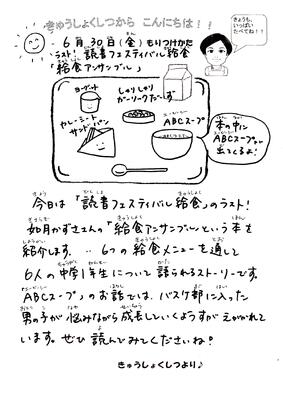 きゅうしょくしつから こんにちは!!
きょうも、
いっぱい
たべてね!!
6月30日(金)もりつけかた
ラスト!読書フェスティバル給食
「給食アンサンブル」
ヨーグルト
しゃりしゃり
ガーリックビーンズ
カレーミート
サンドパン
ABCスープ
本の中に
ABCスープが
出てくるよ!
今日は「読書フェスティバル給食」のラスト!
如月かずさんの「給食アンサンブル」という本を
紹介します。 6つの給食メニューを通して
6人の中学1年生について語られるストーリーです。
「ABCスープ」のお話では、バスケ部に入った
男の子が悩みながら成長していくようすがえがかれて
います。ぜひ読んでみてくださいね!
きゅうしょくしつより♪